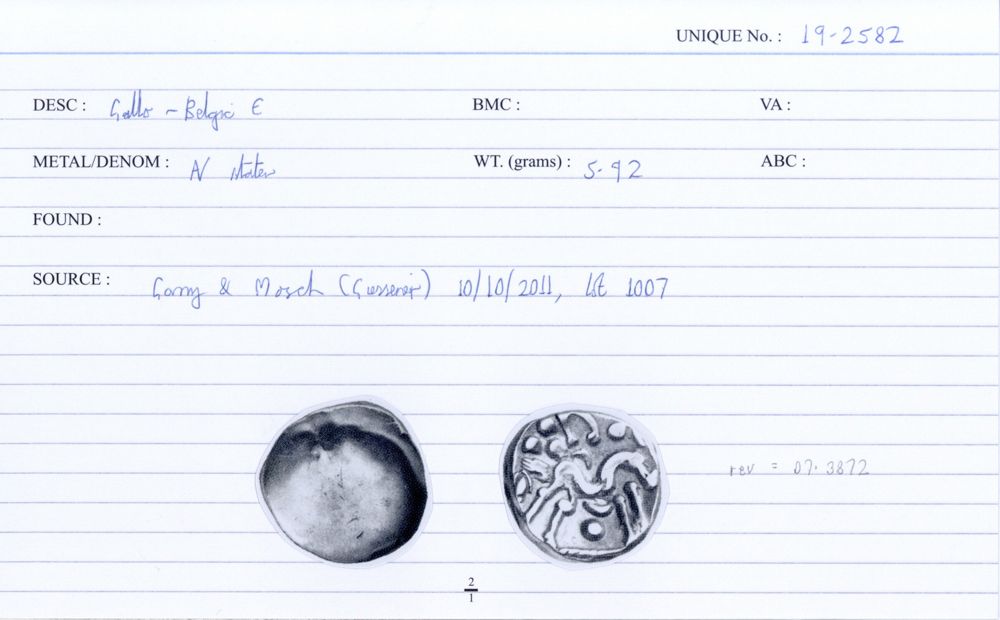 UNIQUE No. : 19-2582
DESC : Gallo - Belgic E BMC : VA :
METAL/DENOM : AV stater WT. (grams) : 5.92 ABC :
FOUND :
SOURCE : Gorny & Mosch (Giessener) 10/10/2011, lot 1007
rev = 07.3872
2
1